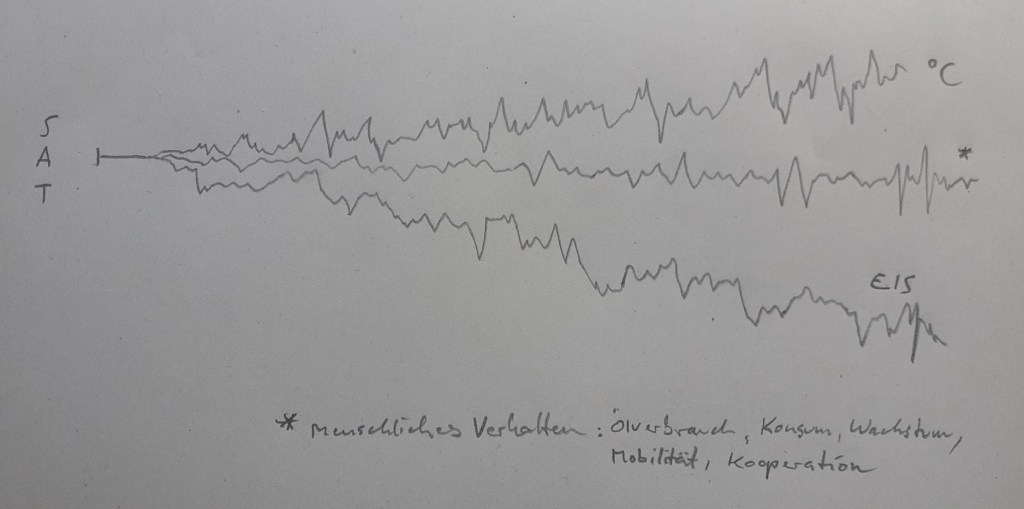 S
A
T
°C
*
EIS
* menschliches Verhalten: Ölverbrauch, Konsum, Wachstum,
Mobilität, Kooperation